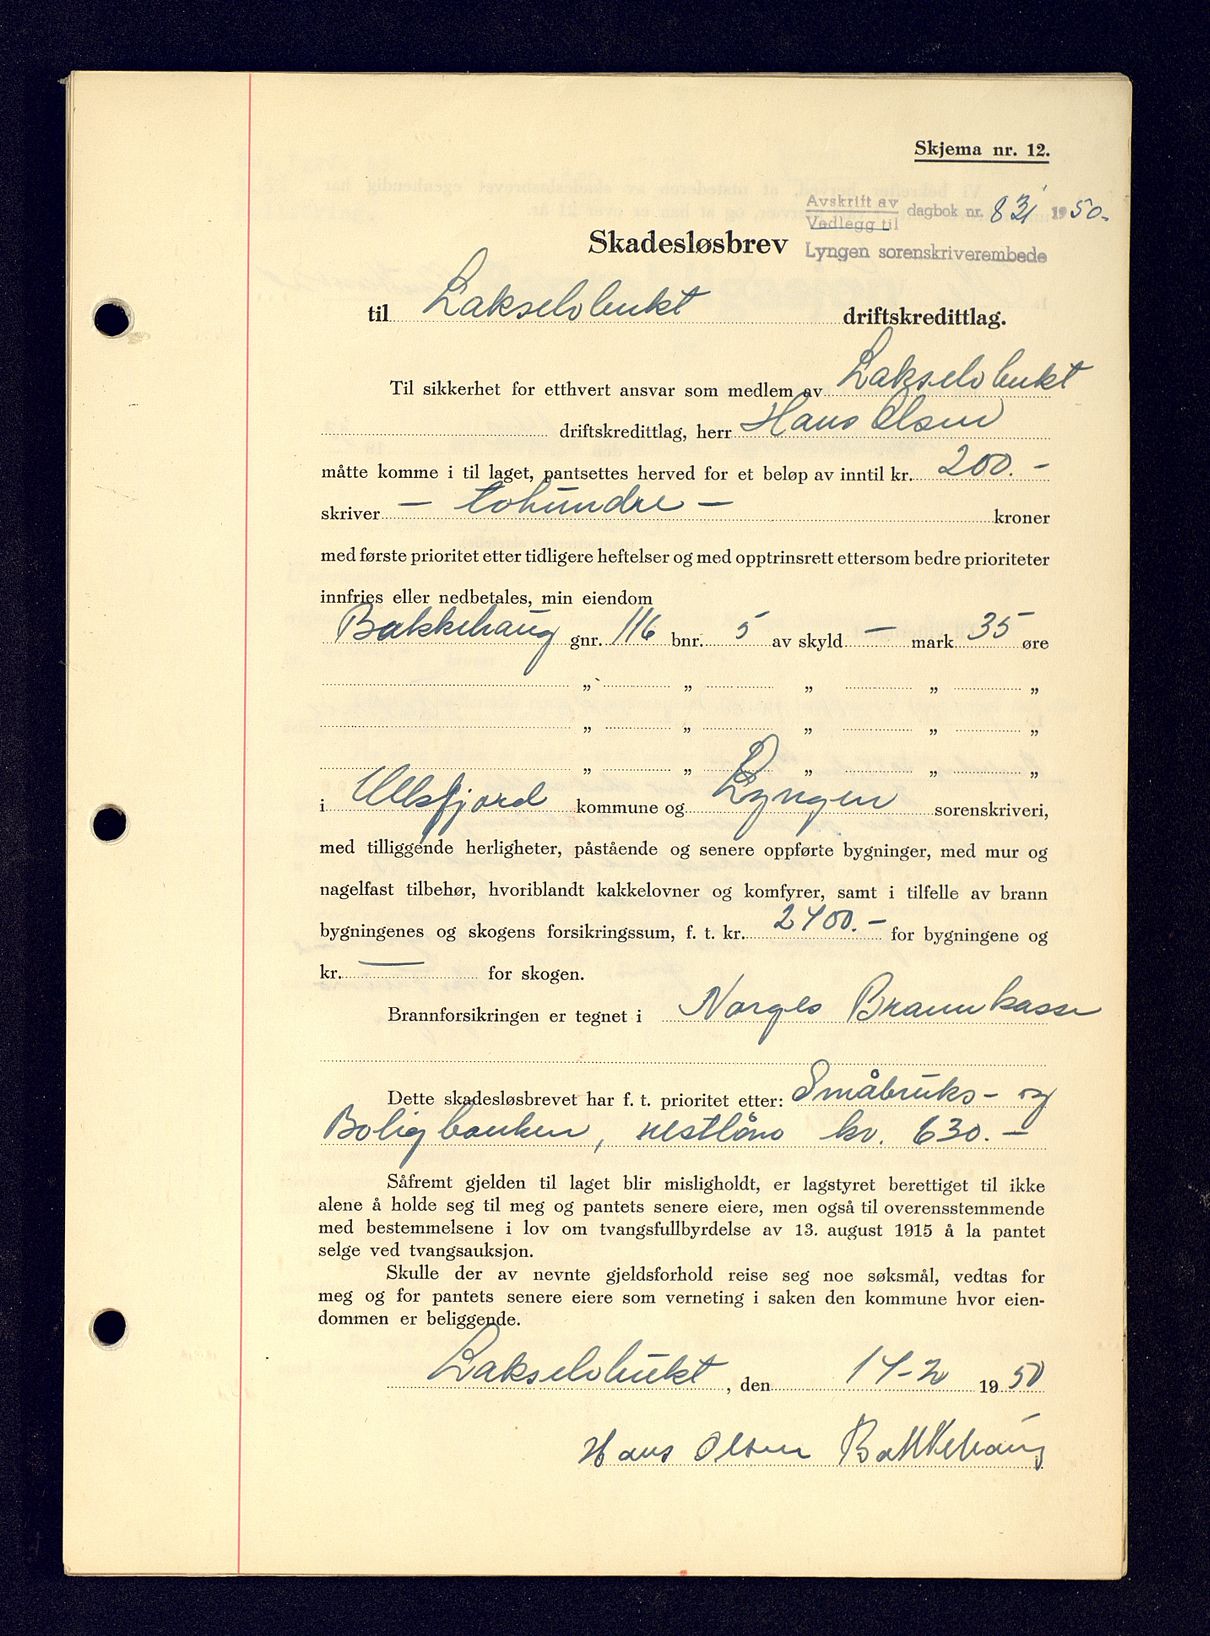 Skjema nr. 12.
Avskrift av
Vedlegg til dagbok nr. 831 1950.-
Lyngen sorenskriverembede
Skadesløsbrev
til Lakselvbukt driftskredittlag.
Til sikkerhet for etthvert ansvar som medlem av Lakselvbukt
driftskredittlag, herr Hans Olsen
måtte komme i til laget, pantsettes herved for et beløp av inntil kr. 200.-
skriver - tohundre - kroner
med første prioritet etter tidligere heftelser og med opptrinsrett ettersom bedre prioriteter
innfries eller nedbetales, min eiendom
Bakkehaug gnr. 116 bnr. 5 av skyld - mark 35 øre
„ „ „ „ „
„ „ „ „ „
„ „ „ „ „
i Ullsfjord kommune og Lyngen sorenskriveri,
med tilliggende herligheter, påstående og senere oppførte bygninger, med mur og
nagelfast tilbehør, hvoriblandt kakkelovner og komfyrer, samt i tilfelle av brann
bygningenes og skogens forsikringssum, f. t. kr. 2400.- for bygningene og
kr. — for skogen.
Brannforsikringen er tegnet i Norges Brannkasse
Dette skadesløsbrevet har f. t. prioritet etter: Småbruks- og
Boligbanken, restlån kr. 630.-
Såfremt gjelden til laget blir misligholdt, er lagstyret berettiget til ikke
alene å holde seg til meg og pantets senere eiere, men også til overensstemmende
med bestemmelsene i lov om tvangsfullbyrdelse av 13. august 1915 å la pantet
selge ved tvangsauksjon.
Skulle der av nevnte gjeldsforhold reise seg noe søksmål, vedtas for
meg og for pantets senere eiere som verneting i saken den kommune hvor eien-
dommen er beliggende.
Lakselvbukt, den 14-2 1950
Hans Olsen Bakkehaug